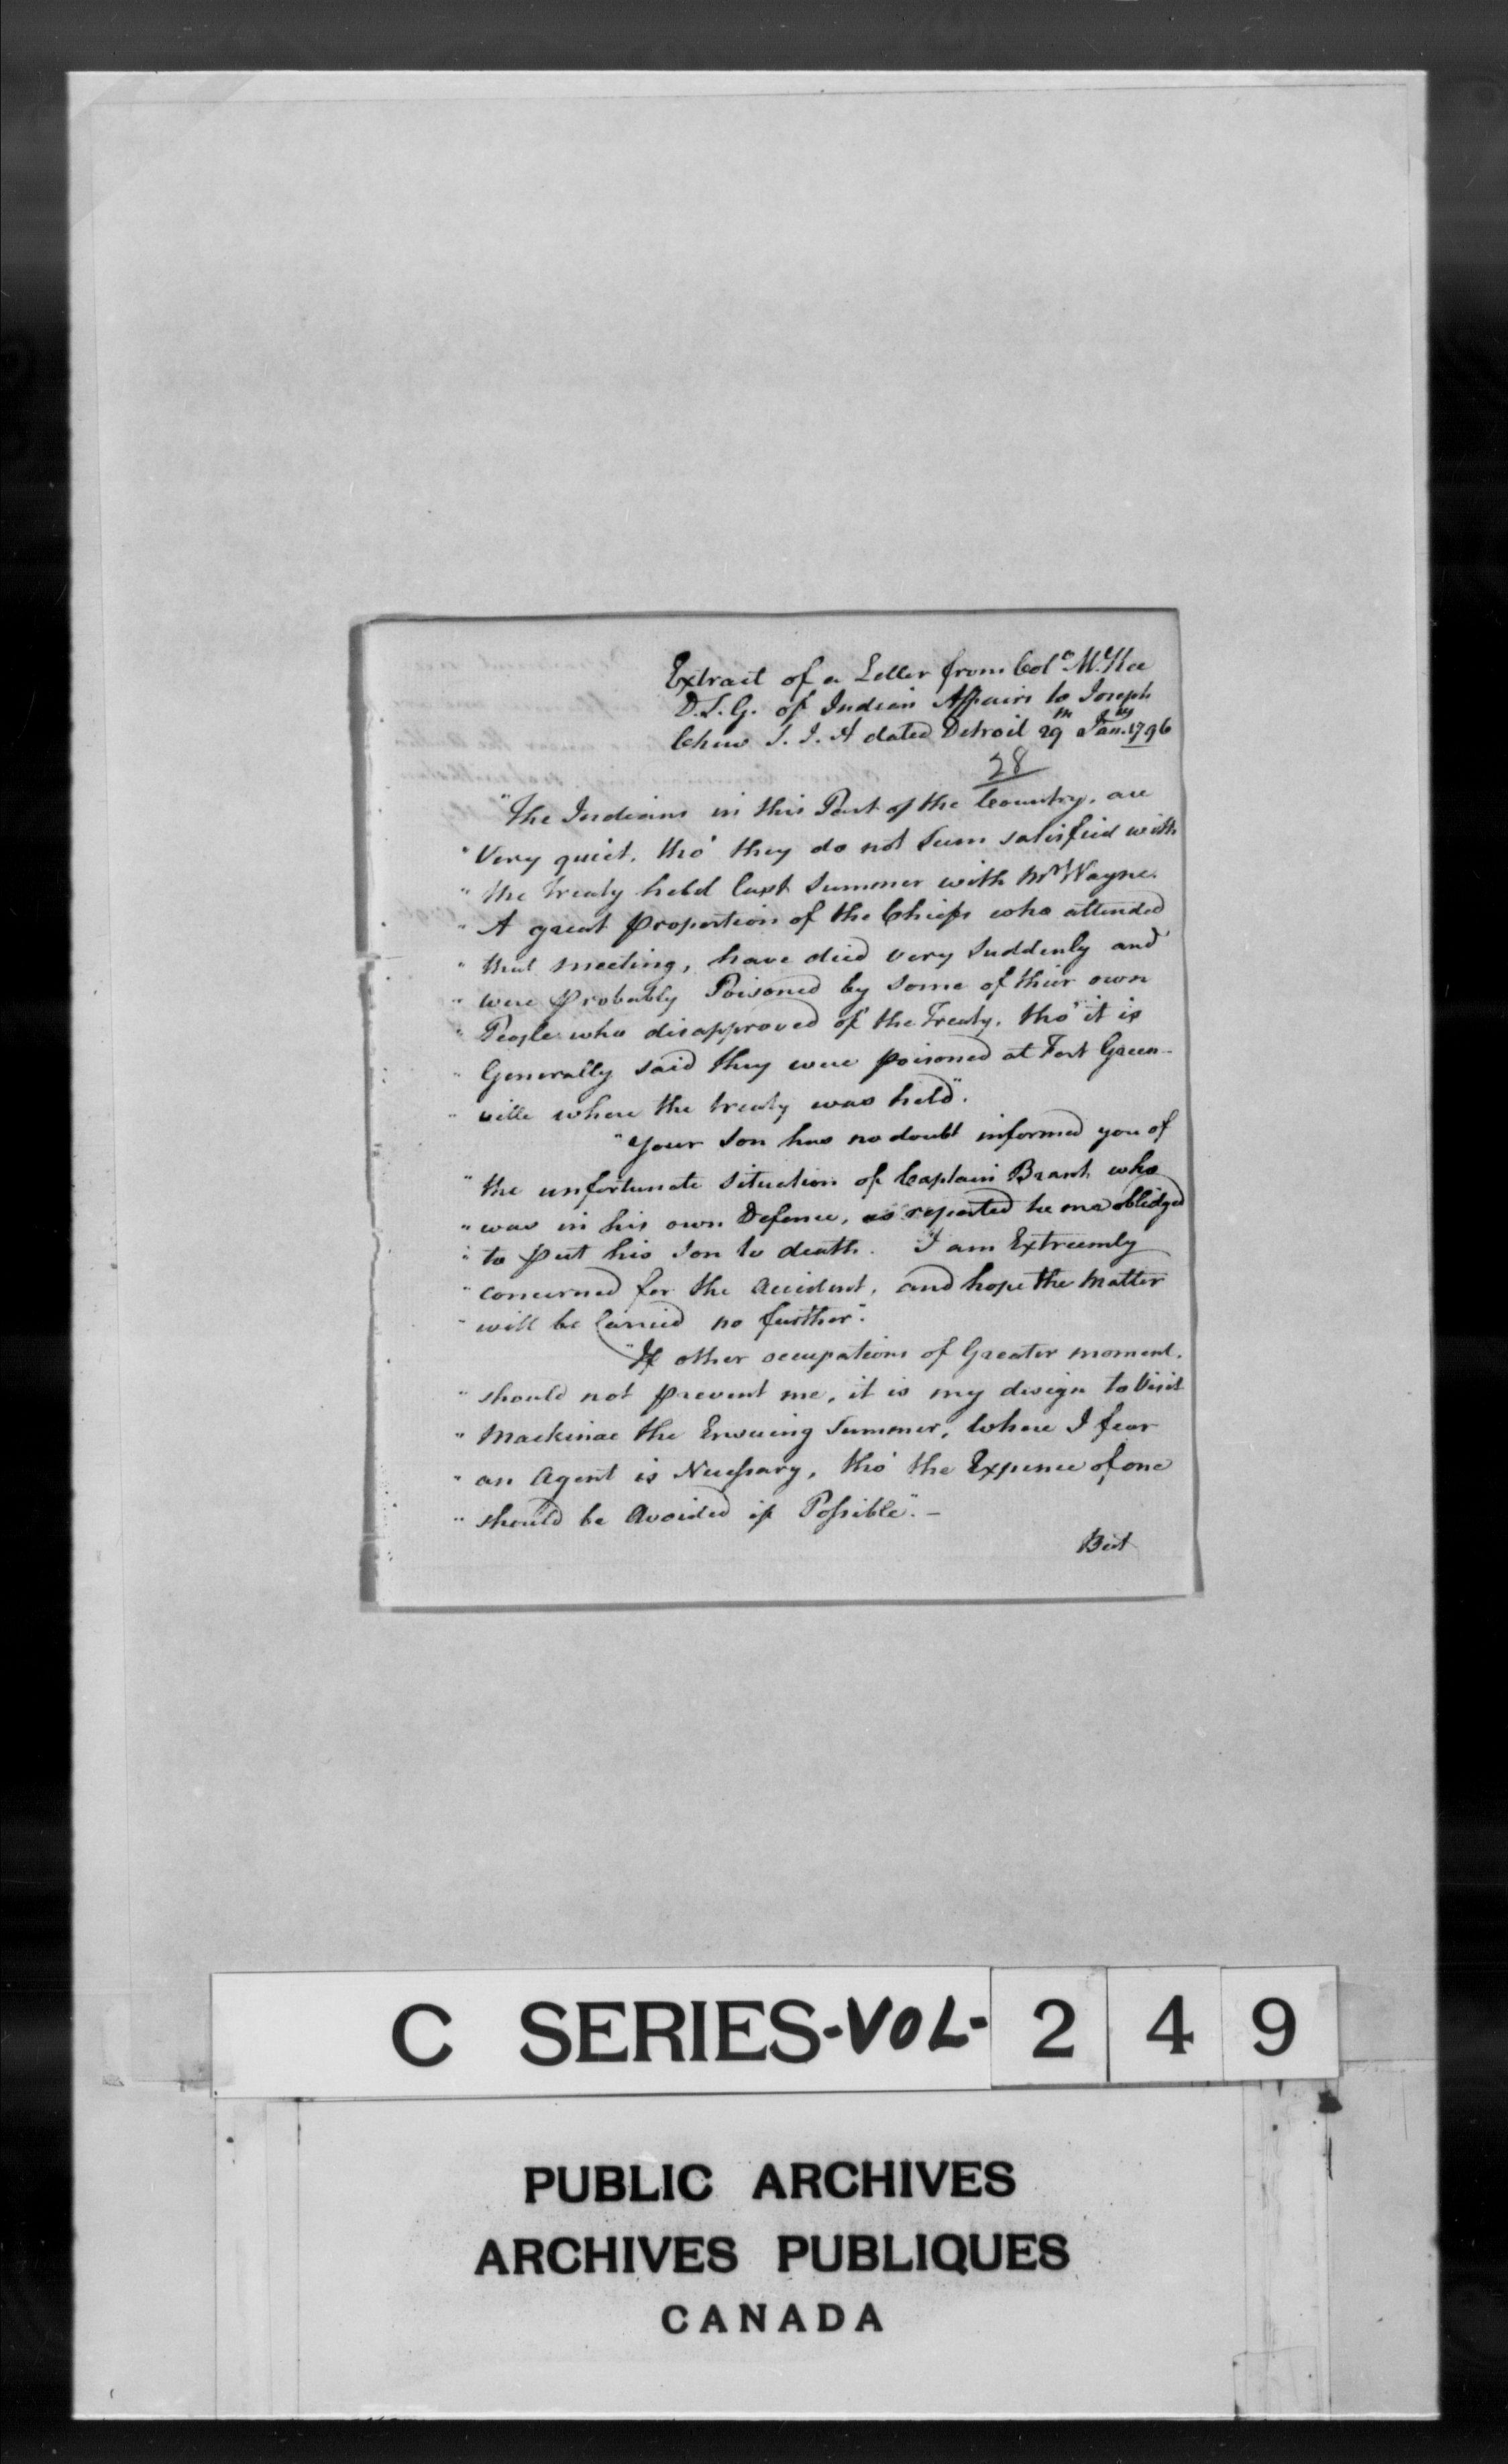 Extract of a Letter from Colo. McKee
D.S.G. of Indian Affairs to Joseph
Chew S. I. A dated Detroit 29th Janry 1796
28
"The Indians in this Part of the Country, are
"Very quiet, tho' they do not seem satisfied with
"the treaty held last Summer with Mr Wayne.
"A great proportion of the Chiefs who attended
"that meeting, have died very Suddenly and
"were probably Poisoned by some of their own
"People who disapproved of the Treaty, tho' it is
"Generally said they were poisoned at Fort Green-
"ville where the treaty was held".
"Your Son has no doubt informed you of
"the unfortunate situation of Captain Brant who
"was in his own Defence, as reported he was obliged
"to put his Son to death. I am Extreemly
"concerned for the accident, and hope the Matter
"will be Carried no further".
"If other occupations of Greater moment.
"should not prevent me, it is my design to Visit
"Mackinac the Ensuing Summer, where I fear
"an Agent is Necessary, tho' the Expence of one
"should be Avoided if Possible". -
But
C SERIES-VOL- 2 4 9
PUBLIC ARCHIVES
ARCHIVES PUBLIQUES
CANADA